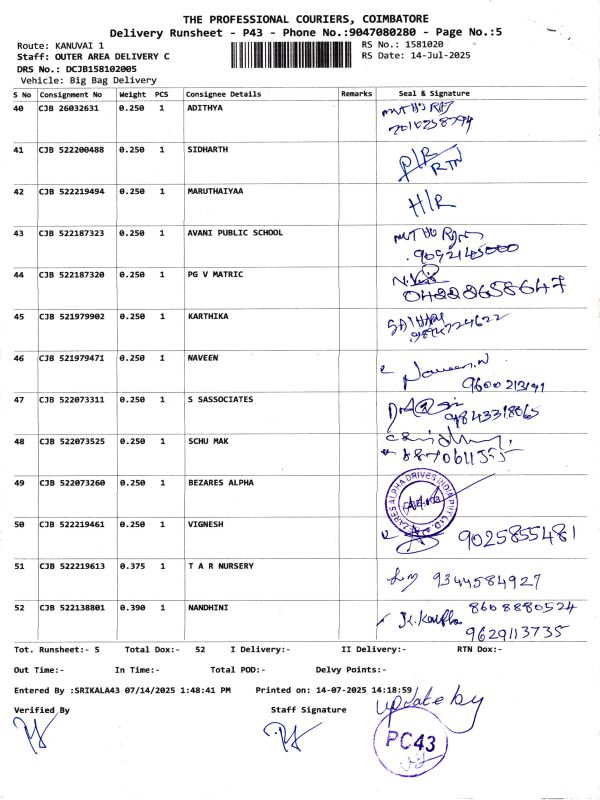 THE PROFESSIONAL COURIERS, COIMBATORE
Delivery Runsheet - P43 - Phone No.:9047080280 - Page No.:5
Route: KANUVAI 1
RS No.: 1581020
Staff: OUTER AREA DELIVERY C
RS Date: 14-Jul-2025
DRS No.: DCJB158102005
Vehicle: Big Bag Delivery
S No Consignment No Weight PCS Consignee Details Remarks Seal & Signature
40 CJB 26032631 0.250 1 ADITHYA
41 CJB 522200488 0.250 1 SIDHARTH
RTN
42 CJB 522219494 0.250 1 MARUTHAIYAA
43 CJB 522187323 0.250 1 AVANI PUBLIC SCHOOL
44 CJB 522187320 0.250 1 PG V MATRIC
45 CJB 521979902 0.250 1 KARTHIKA
46 CJB 521979471 0.250 1 NAVEEN
Naveen.N
47 CJB 522073311 0.250 1 S SASSOCIATES
9843318065
48 CJB 522073525 0.250 1 SCHU MAK
8870611555
49 CJB 522073260 0.250 1 BEZARES ALPHA
50 CJB 522219461 0.250 1 VIGNESH
9025855481
51 CJB 522219613 0.375 1 T A R NURSERY
9344584927
52 CJB 522138801 0.390 1 NANDHINI
8608880524
9629113735
Tot. Runsheet:- 5 Total Dox:- 52 I Delivery:- II Delivery:- RTN Dox:-
Out Time:- In Time:- Total POD:- Delvy Points:-
Entered By :SRIKALA43 07/14/2025 1:48:41 PM Printed on: 14-07-2025 14:18:59
update by
Verified By Staff Signature
PC43